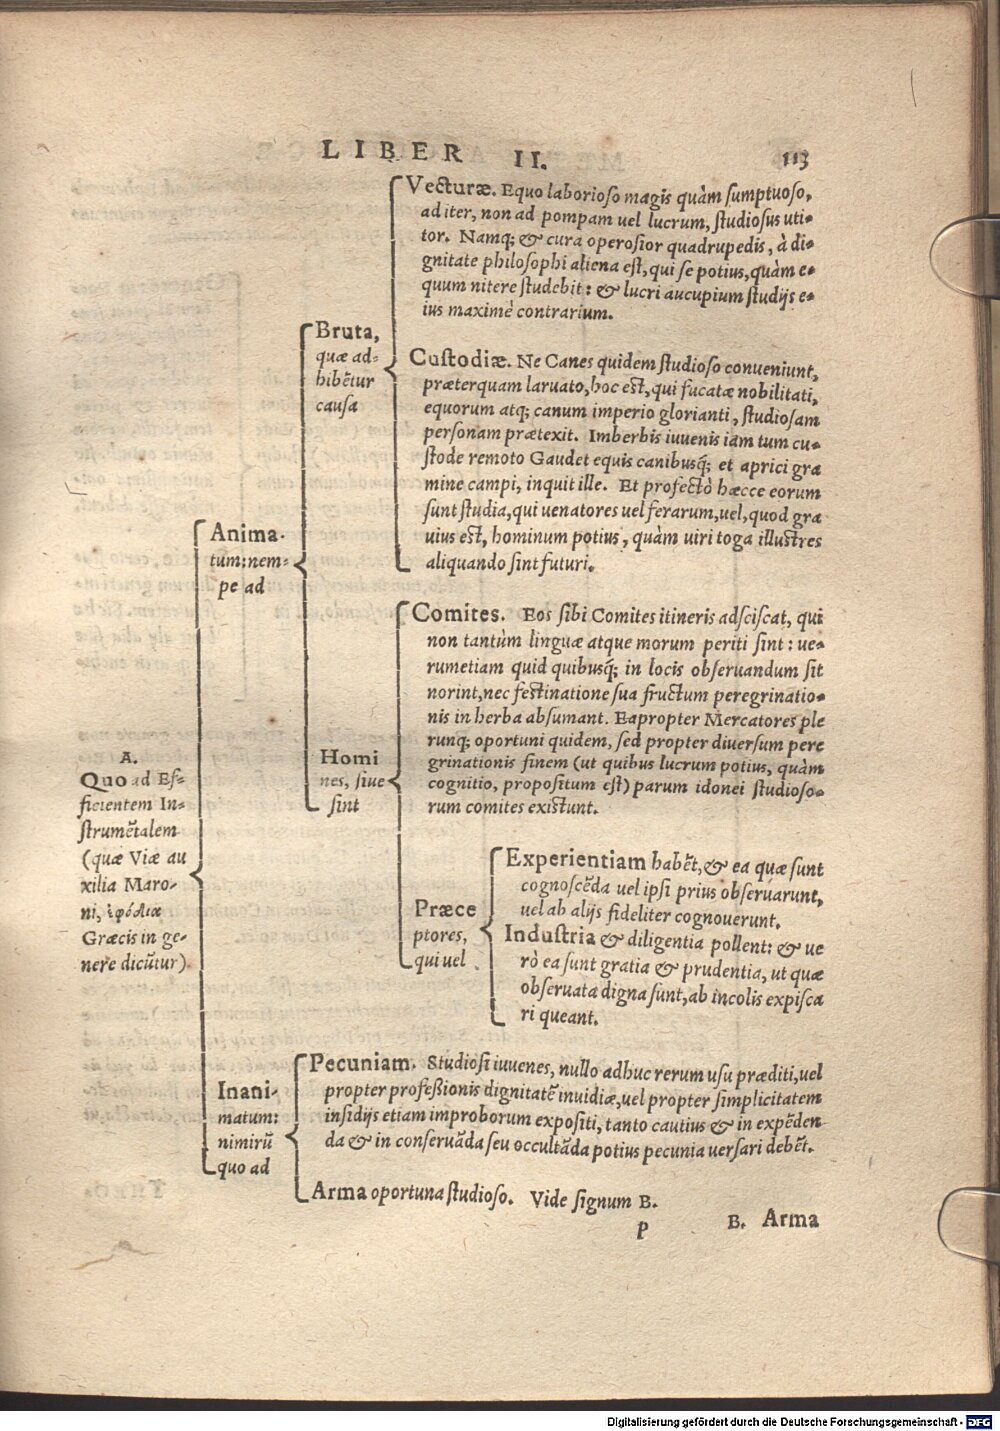 LIBER II. 113
A.
Quo ad Ef-
ficientem In-
strumētalem
(quæ Viæ au
xilia Maro-
ni, ἐφόδια
Græcis in ge-
nere dicūtur)
Anima-
tum: nem-
pe ad
Bruta,
quæ ad-
hibētur
causa
Vecturæ. Equo laborioso magis quàm sumptuoso,
ad iter, non ad pompam uel lucrum, studiosus uti-
tor. Namq; & cura operosior quadrupedis, à di-
gnitate philosophi aliena est, qui se potius, quàm e-
quum nitere studebit: & lucri aucupium studijs e-
ius maximè contrarium.
Custodiæ. Ne Canes quidem studioso conueniunt,
præterquam laruato, hoc est, qui fucatæ nobilitati,
equorum atq; canum imperio glorianti, studiosam
personam prætexit. Imberbis iuuenis iam tum cu-
stode remoto Gaudet equis canibusq́; et aprici gra
mine campi, inquit ille. Et profectò hæcce eorum
sunt studia, qui uenatores uel ferarum, uel, quod gra
uius est, hominum potius, quàm uiri toga illustres
aliquando sint futuri.
Homi
nes, siue
sint
Comites. Eos sibi Comites itineris adsciscat, qui
non tantùm linguæ atque morum periti sint: ue-
rumetiam quid quibusq́; in locis obseruandum sit
norint, nec festinatione sua fructum peregrinatio-
nis in herba absumant. Eapropter Mercatores ple
runq; oportuni quidem, sed propter diuersum pere
grinationis finem (ut quibus lucrum potius, quàm
cognitio, propositum est) parum idonei studioso-
rum comites existunt.
Præce
ptores,
qui uel
Experientiam habēt, & ea quæ sunt
cognoscēda uel ipsi prius obseruarunt,
uel ab alijs fideliter cognouerunt.
Industria & diligentia pollent: & ue
rò ea sunt gratia & prudentia, ut quæ
obseruata digna sunt, ab incolis expisca
ri queant.
Inani-
matum:
nimirū
quo ad
Pecuniam. Studiosi iuuenes, nullo adhuc rerum usu præditi, uel
propter professionis dignitatē inuidiæ, uel propter simplicitatem
insidijs etiam improborum expositi, tanto cautius & in expēden-
da & in conseruāda seu occultāda potius pecunia uersari debēt.
Arma oportuna studioso. Vide signum B.
P B. Arma
Digitalisierung gefördert durch die Deutsche Forschungsgemeinschaft - DFG